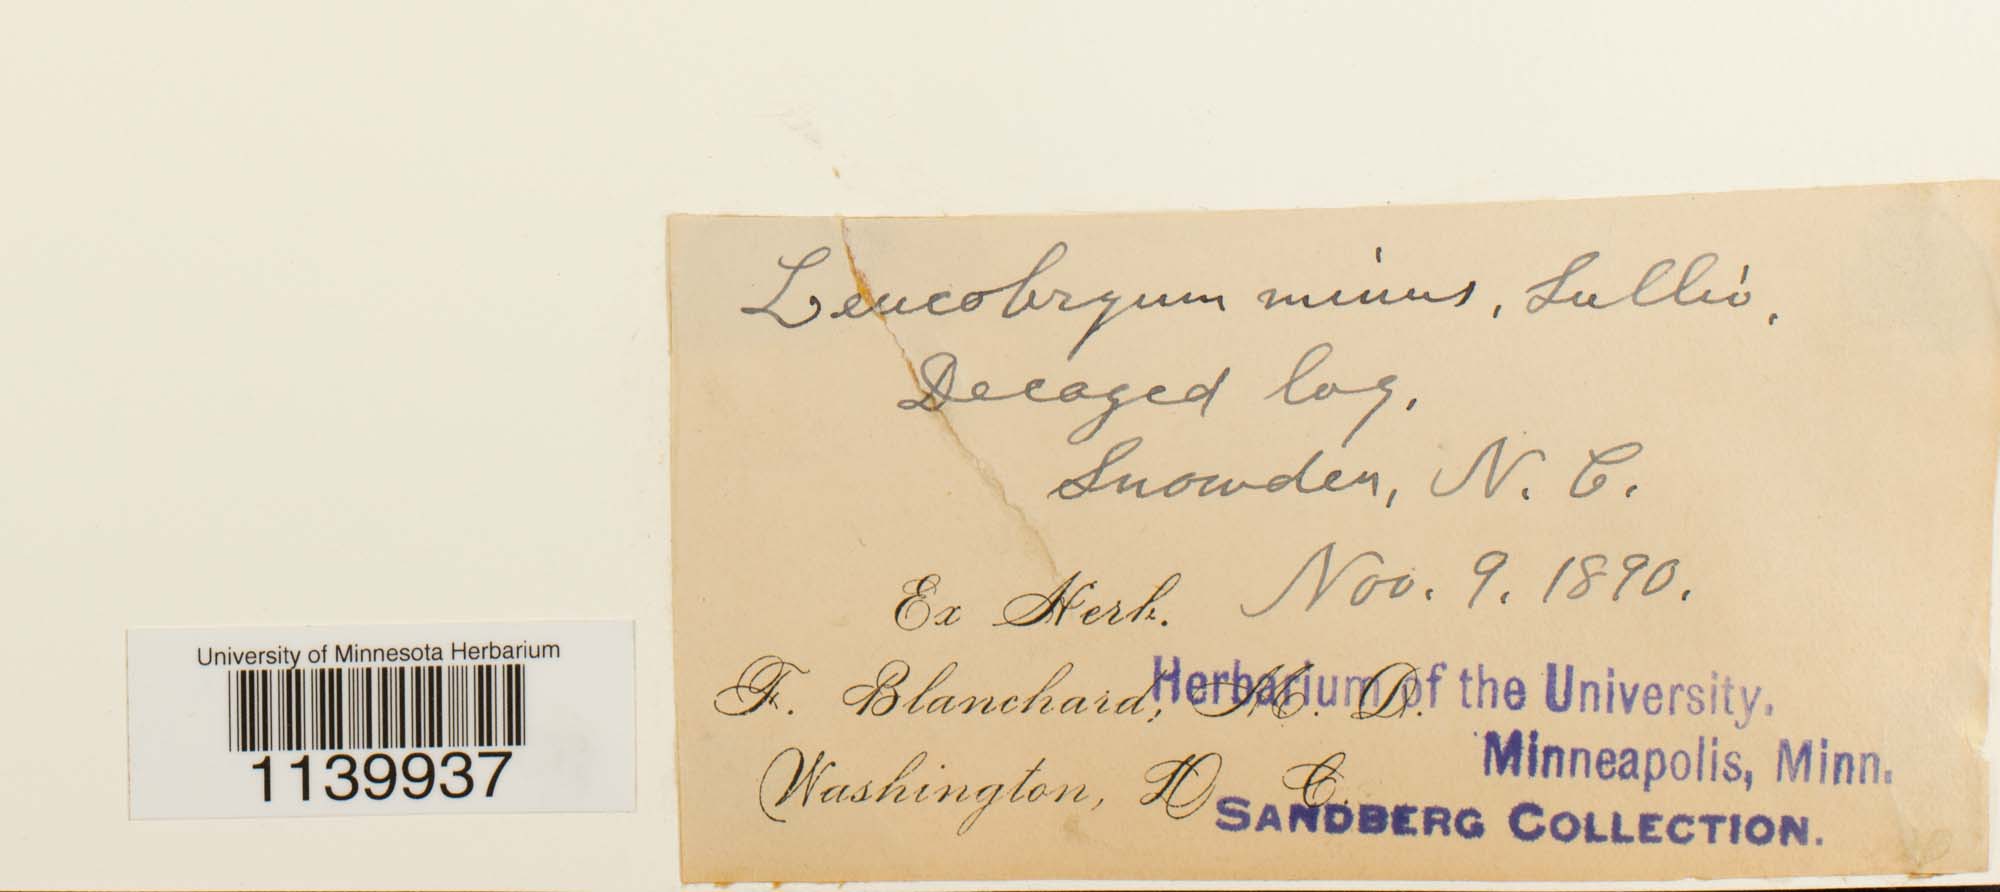 Leucobryum minus, Sulliv.
Decayed log.
Snowden, N. C.
Nov. 9. 1890.
Ex Herb.
F. Blanchard, M. D.
Washington, D. C.
Herbarium of the University.
Minneapolis, Minn.
SANDBERG COLLECTION.
University of Minnesota Herbarium
1139937